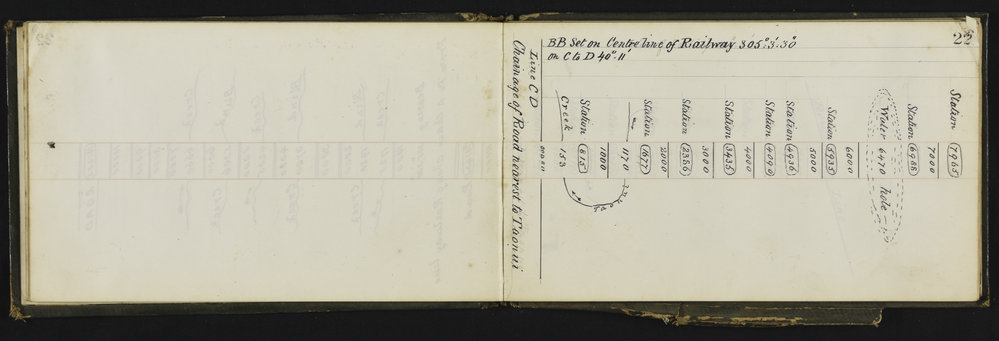 22
BB Set on Centre line of Railway 305°.3'.30"
on C to D 40°.11'
Line CD
Chainage of Road nearest to Taonui
Creek 153
Station 815
1000
1170
Station 1677
2000
Station 2386
3000
Station 3435
4000
Station 4090
Station 4936
5000
Station 5935
6000
Water 6470 hole
Station 6988
7000
Station 7965
Taonui